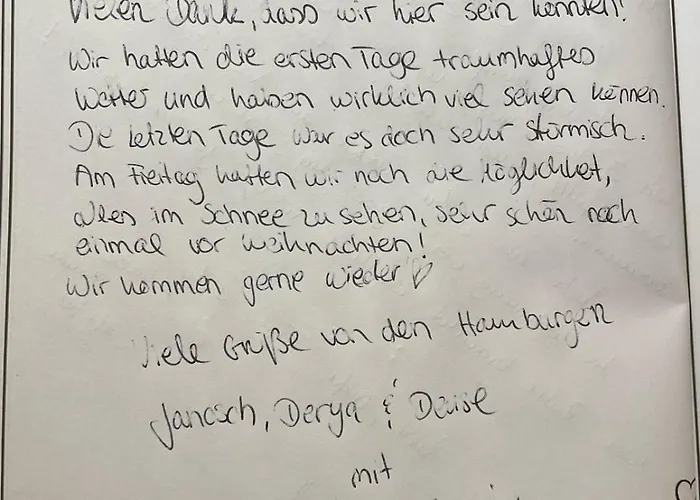 Vielen Dank, dass wir hier sein konnten!
Wir hatten die ersten Tage traumhaftes
Wetter und haben wirklich viel sehen können.
Die letzten Tage war es doch sehr stürmisch.
Am Freitag hatten wir noch die Möglichkeit,
alles im Schnee zu sehen, sehr schön noch
einmal vor Weihnachten!
Wir kommen gerne wieder ♡
Viele Grüße von den Hamburgern
Janosch, Derya &
mit